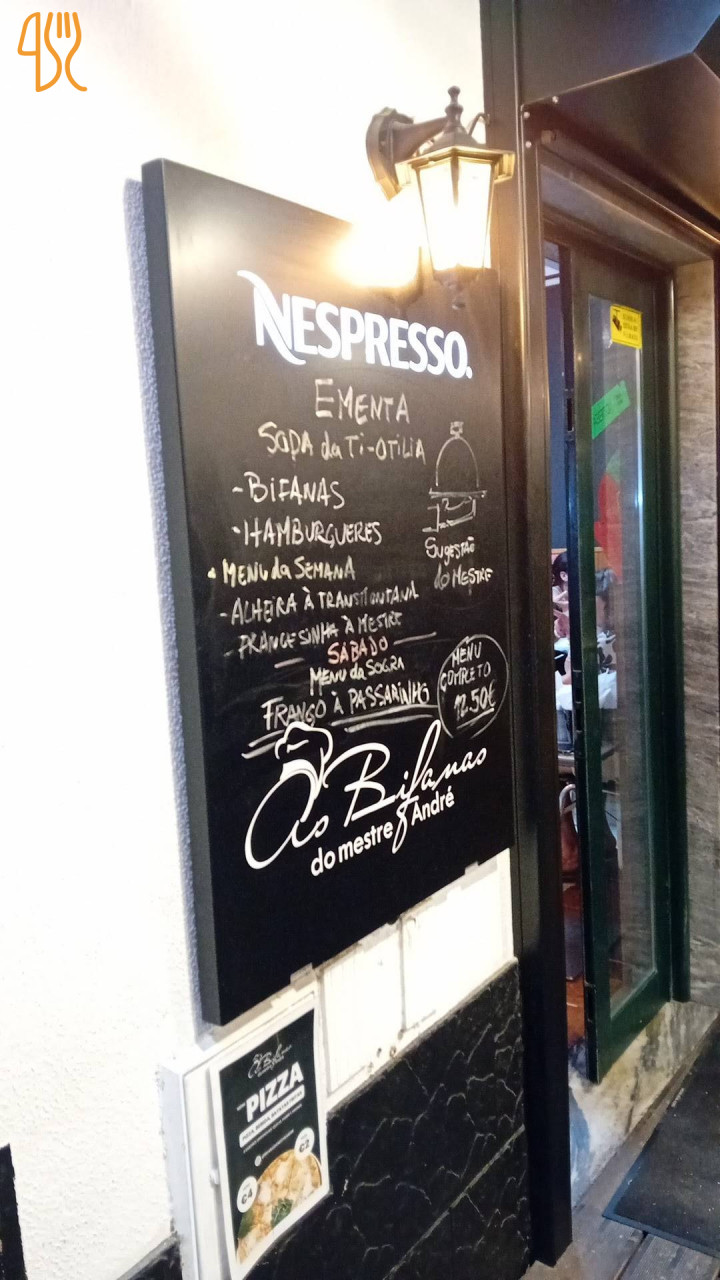 NESPRESSO.
EMENTA
SOPA da TI-OTILIA
-BIFANAS
-HAMBURGUERES
• MENU da SEMANA
-ALHEIRA À TRANSMONTANA
-FRANCESINHA À MESTRE
SÁBADO
MENU da SOGRA
FRANGO À PASSARINHO
SUGESTÃO
do MESTRE
MENU
COMPLETO
12.50€
As Bifanas
do mestre André
PIZZA
€4
€2